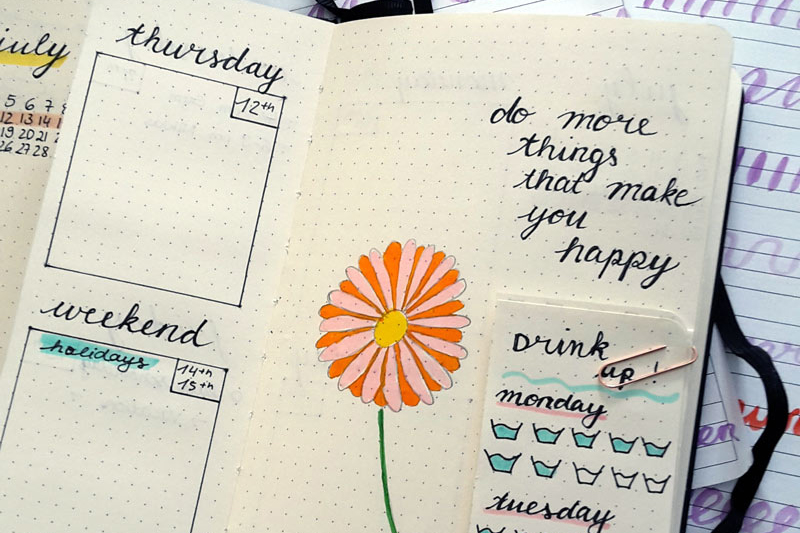 july
5 6 7
12 13 14 1
19 20 21 2
26 27 28
thursday
12th
weekend
holidays
14th
15th
do more
things
that make
you
happy
Drink
up!
monday
tuesday